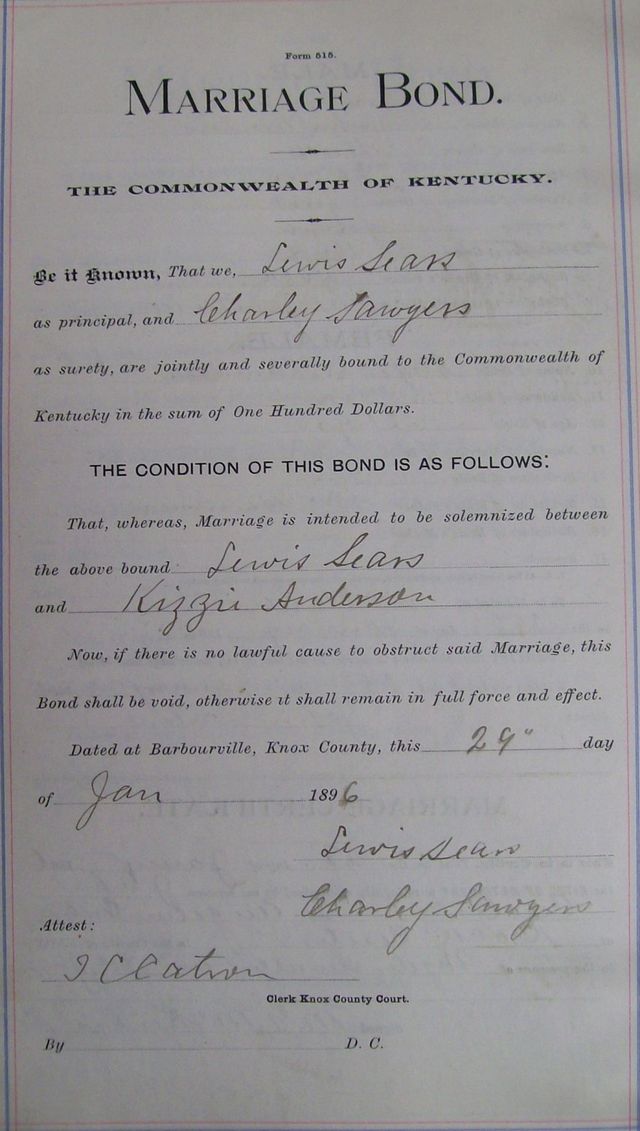 Form 515.
MARRIAGE BOND.
THE COMMONWEALTH OF KENTUCKY.
Be it Known, That we, Lewis Sears
as principal, and Charley Sawyers
as surety, are jointly and severally bound to the Commonwealth of
Kentucky in the sum of One Hundred Dollars.
THE CONDITION OF THIS BOND IS AS FOLLOWS:
That, whereas, Marriage is intended to be solemnized between
the above bound Lewis Sears
and Kizzie Anderson
Now, if there is no lawful cause to obstruct said Marriage, this
Bond shall be void, otherwise it shall remain in full force and effect.
Dated at Barbourville, Knox County, this 29" day
of Jan 1896
Lewis Sears
Charley Sawyers
Attest:
Catron
Clerk Knox County Court.
By D. C.